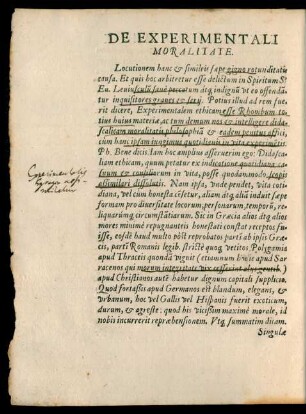 DE EXPERIMENTALI
MORALITATE.
Locutionem hanc & similes sæpe gigno rotunditatis
causa. Et quis hoc arbitretur esse delictum in Spiritum S?
Eu. Leuiusculi sanè peccatum atq; indignū vt eo offendātur
inquisitores graues & serij. Potius illud ad rem fuerit
dicere, Experimentalem ethicam esse Rhombum totius
huius materiæ, ac tum demum nos ex
moralitatis philosophiā & eadem penitus
cum hanc ipsam imaginamur quotidieuis in vita
Ph. Bene dicis. Iam hoc aupiùs asseruerim ego: Didascaliam
ethicam, quum petatur ex indicationibus
& in vita, posse quodammodo
assimilari Nam ipsa, vnde pendet, vita cotidiana,
vel cum honesta censetur, aliam atq; aliā induit sæpe
formam pro diuersitate locorum, personarum, temporū, reliquarumq́;
circumstantiarum. Sic in Græcia alios atq; alios
mores minimè repugnantes honestati constat receptos fuisse,
eosdē haud multo pòst reprobatos partì ab ipsis Græcis,
partì Romanis legib. strictè quoq; vetitos. Polygamia
apud Thracas quondā viguit (etiamnum hodie apud Sarracenos
qui morum integritate vix cesserint
apud Christianos autē habetur dignum capitali supplicio.
Quod fortassis apud Germanos est blandum, elegans, &
vrbanum, hoc vel Gallis vel Hispanis fuerit exoticum,
durum, & agreste: quod his vicissim maximè morale, id
nobis incurrerit reprehensionem. Vtq; summatim dicam.
Singulæ